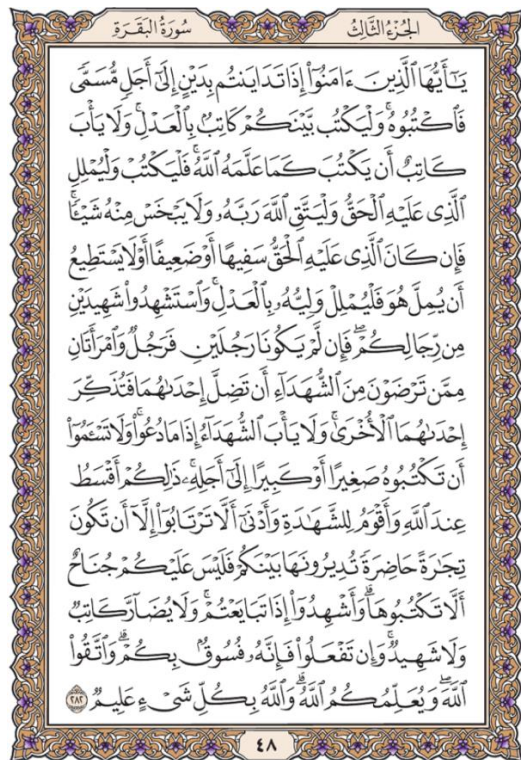 الجُزْءُ الثَّالِثُ
سُورَةُ البَقَرَةِ
يَـٰٓأَيُّهَا ٱلَّذِينَ ءَامَنُوٓا۟ إِذَا تَدَايَنتُم بِدَيْنٍ إِلَىٰٓ أَجَلٍ مُّسَمًّى
فَٱكْتُبُوهُ ۚ وَلْيَكْتُب بَّيْنَكُمْ كَاتِبٌۢ بِٱلْعَدْلِ ۚ وَلَا يَأْبَ
كَاتِبٌ أَن يَكْتُبَ كَمَا عَلَّمَهُ ٱللَّهُ ۚ فَلْيَكْتُبْ وَلْيُمْلِلِ
ٱلَّذِى عَلَيْهِ ٱلْحَقُّ وَلْيَتَّقِ ٱللَّهَ رَبَّهُۥ وَلَا يَبْخَسْ مِنْهُ شَيْـًٔا ۚ
فَإِن كَانَ ٱلَّذِى عَلَيْهِ ٱلْحَقُّ سَفِيهًا أَوْ ضَعِيفًا أَوْ لَا يَسْتَطِيعُ
أَن يُمِلَّ هُوَ فَلْيُمْلِلْ وَلِيُّهُۥ بِٱلْعَدْلِ ۚ وَٱسْتَشْهِدُوا۟ شَهِيدَيْنِ
مِن رِّجَالِكُمْ ۖ فَإِن لَّمْ يَكُونَا رَجُلَيْنِ فَرَجُلٌ وَٱمْرَأَتَانِ
مِمَّن تَرْضَوْنَ مِنَ ٱلشُّهَدَآءِ أَن تَضِلَّ إِحْدَىٰهُمَا فَتُذَكِّرَ
إِحْدَىٰهُمَا ٱلْأُخْرَىٰ ۚ وَلَا يَأْبَ ٱلشُّهَدَآءُ إِذَا مَا دُعُوا۟ ۚ وَلَا تَسْـَٔمُوٓا۟
أَن تَكْتُبُوهُ صَغِيرًا أَوْ كَبِيرًا إِلَىٰٓ أَجَلِهِۦ ۚ ذَٰلِكُمْ أَقْسَطُ
عِندَ ٱللَّهِ وَأَقْوَمُ لِلشَّهَـٰدَةِ وَأَدْنَىٰٓ أَلَّا تَرْتَابُوٓا۟ ۖ إِلَّآ أَن تَكُونَ
تِجَـٰرَةً حَاضِرَةً تُدِيرُونَهَا بَيْنَكُمْ فَلَيْسَ عَلَيْكُمْ جُنَاحٌ
أَلَّا تَكْتُبُوهَا ۗ وَأَشْهِدُوٓا۟ إِذَا تَبَايَعْتُمْ ۚ وَلَا يُضَآرَّ كَاتِبٌ
وَلَا شَهِيدٌ ۚ وَإِن تَفْعَلُوا۟ فَإِنَّهُۥ فُسُوقٌۢ بِكُمْ ۗ وَٱتَّقُوا۟
ٱللَّهَ ۖ وَيُعَلِّمُكُمُ ٱللَّهُ ۗ وَٱللَّهُ بِكُلِّ شَىْءٍ عَلِيمٌ ٢٨٢
٤٨